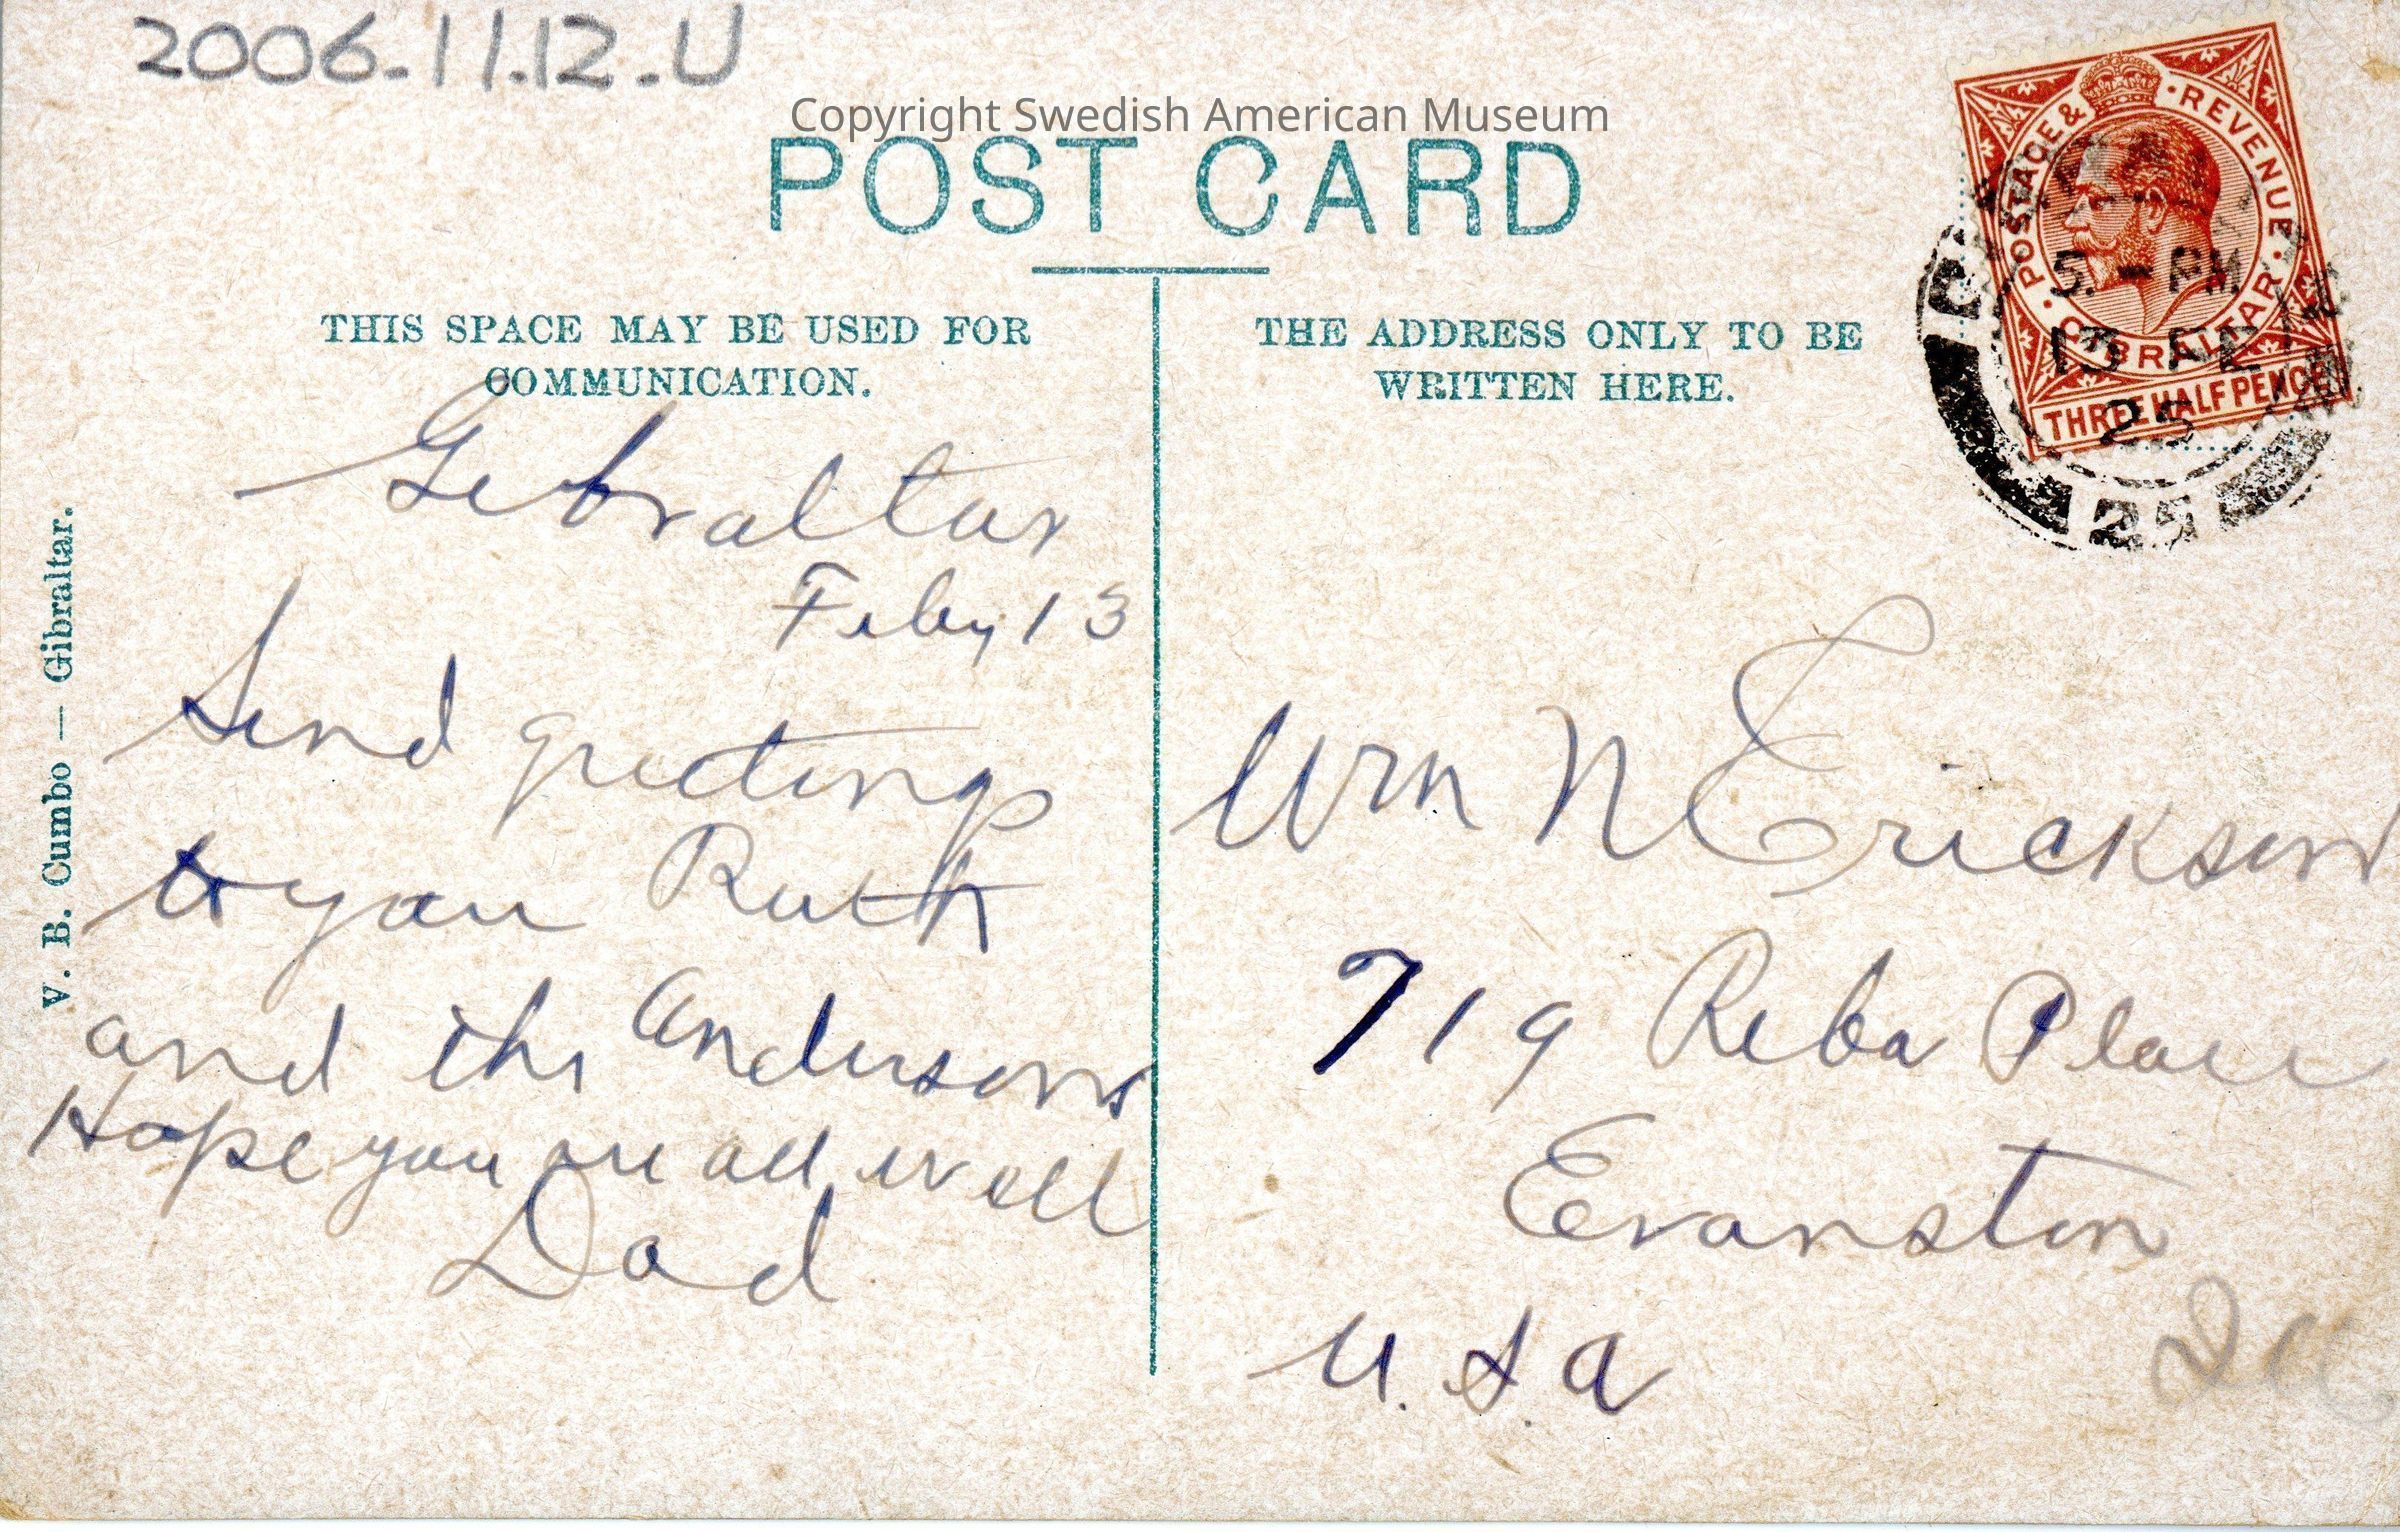 2006.11.12.U
Copyright Swedish American Museum
POST CARD
THIS SPACE MAY BE USED FOR
COMMUNICATION.
Gibraltar
Feby 13
Send greetings
to you Ruth
and the Andersons
Hope you are all well
Dad
V. B. Cumbo — Gibraltar.
THE ADDRESS ONLY TO BE
WRITTEN HERE.
Wm N Erickson
719 Reba Place
Evanston
U.S.A
POSTAGE & REVENUE
GIBRALTAR
THREE HALF PENCE
5. - PM
13 FE
25